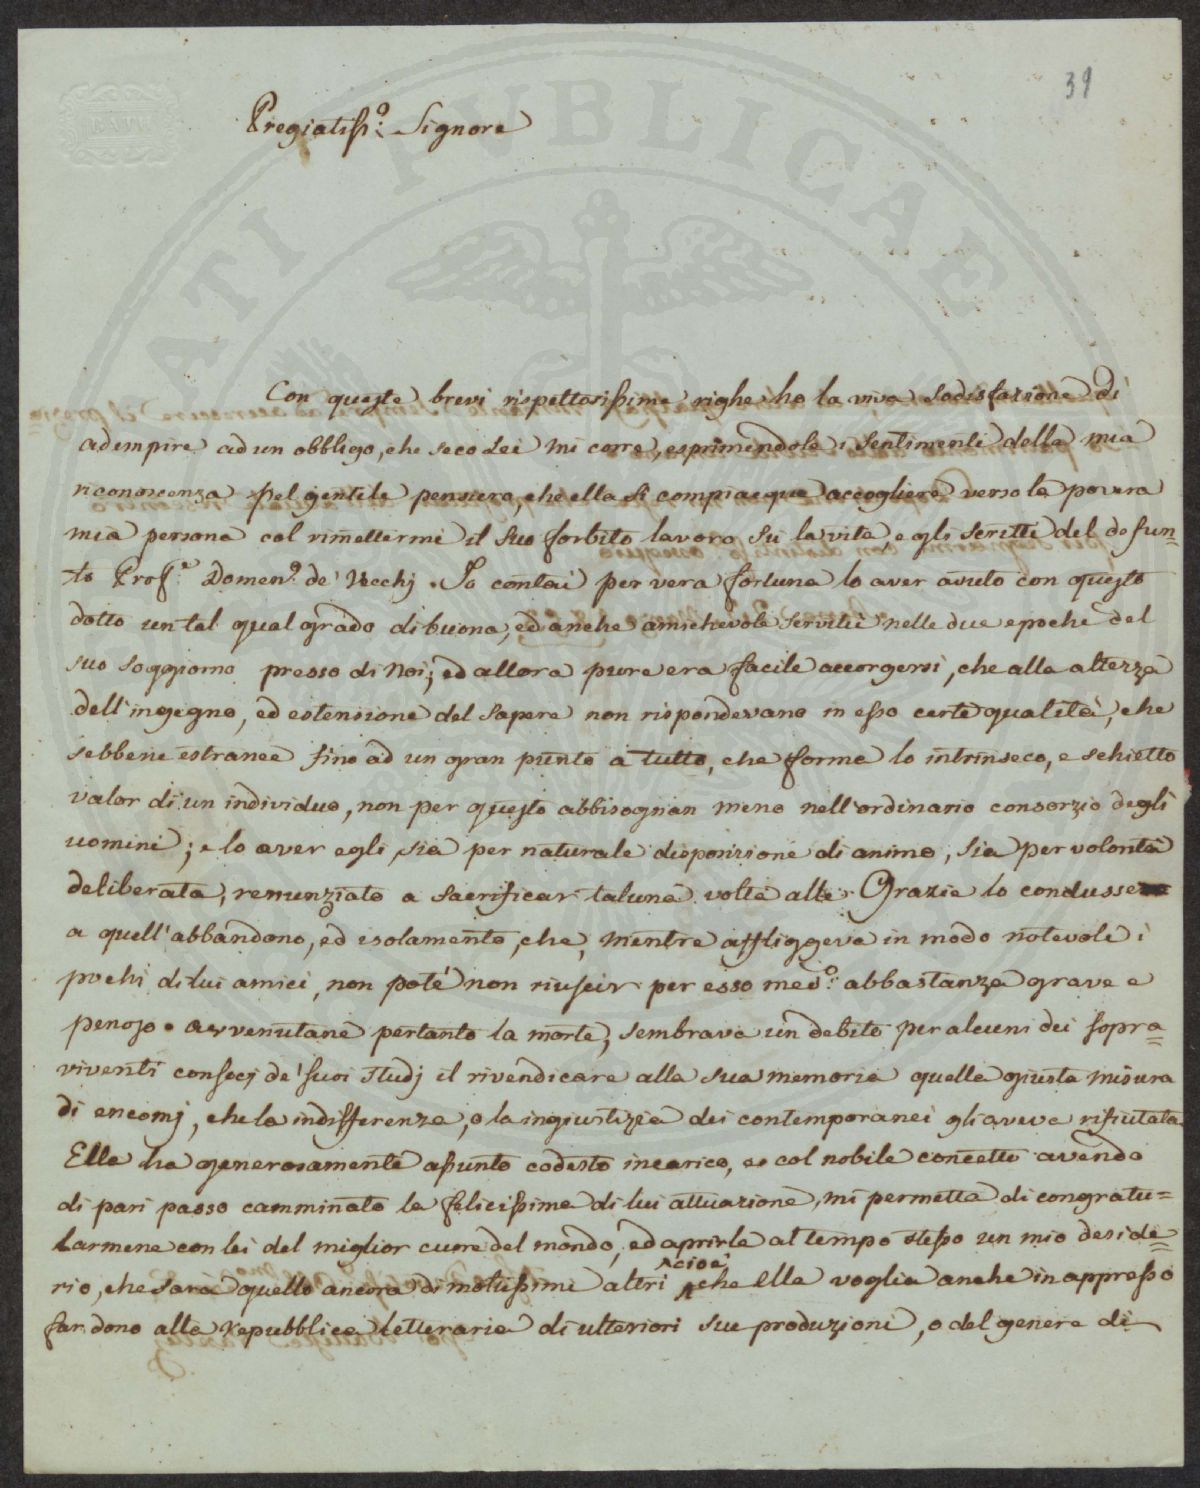 39
Pregiatiss.º Signore
Con queste brevi rispettosissime righe ho la viva sodisfazione di
adempire ad un obbligo, che seco Lei mi corre, esprimendole i sentimenti della mia
riconoscenza pel gentile pensiero, che ella si compiacque accogliere verso la povera
mia persona col rimettermi il suo forbito lavoro su la vita e gli scritti del defun=
to Prof.e Domen.º de' Vecchj. Io contai per vera fortuna lo aver avuto con questo
dotto un tal qual grado di buona, ed anche amichevole servitù nelle due epoche del
suo soggiorno presso di Noi; ed allora pure era facile accorgersi, che alla altezza
dell'ingegno, ed estensione del sapere non rispondevano in esso certe qualità, che
sebbene estranee fino ad un gran punto a tutto, che forma lo intrinseco, e schietto
valor di un individuo, non per questo abbisognan meno nell'ordinario consorzio degli
uomini; e lo aver egli, sia per naturale disposizione di animo, sia per volontà
deliberata, renunziato a sacrificar taluna volta alle Grazie lo condusse
a quell'abbandono, ed isolamento, che, mentre affliggeva in modo notevole i
pochi di lui amici, non poté non riuscir per esso med.º abbastanza grave e
penoso. avvenutane pertanto la morte, sembrava un debito per alcuni dei sopra=
viventi consocj de' suoi studj il rivendicare alla sua memoria quella giusta misura
di encomj, che la indifferenza, o la ingiustizia dei contemporanei gli aveva rifiutata.
Ella ha generosamente assunto codesto incarico, e col nobile concetto avendo
di pari passo camminato la felicissima di lui attuazione, mi permetta di congratu=
larmene con lei del miglior cuore del mondo, ed aprirle al tempo stesso un mio deside=
rio, che sarà quello ancora di moltissimi altri cioè che Ella voglia anche in appresso
far dono alla repubblica letteraria di ulteriori sue produzioni, o del genere di
ATI PUBLICAE
BATH